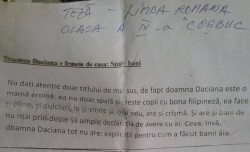 TEZĂ - LIMBA ROMANA
CLASA A IV-a "COȘBUC"
Doamna Daciana e femeie de casa: Spală bani
Nu dați atenție doar titlului de mai sus, de fapt doamna Daciana este o
mamă eroină: ea nu doar spală și crește copii cu bona filipineză, ea face
și pîine, și dulciuri, le și vinde și nu, are și crișmă. Și are și bani de
nu mai prididește să umple declarația de avere cu ei. Ceva, însă,
doamna Daciana tot nu are: explicații pentru cum a făcut banii ăia.